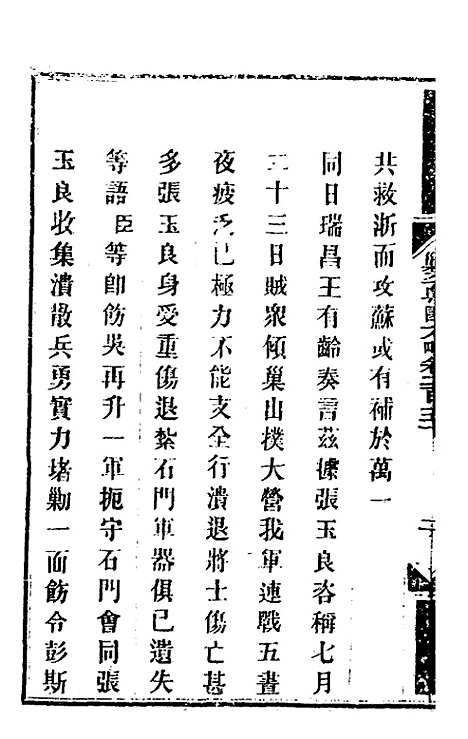 共救浙而攻蘇或有補於萬一
同日瑞昌王有齡奏言茲據張玉良咨稱七月
二十三日賊衆傾巢出撲大營我軍連戰五晝
夜疲乏已極力不能支全行潰退將士傷亡甚
多張玉良身受重傷退紮石門軍器俱已遺失
等語臣等卽飭吳再升一軍扼守石門會同張
玉良收集潰散兵勇實力堵勦一面飭令彭斯